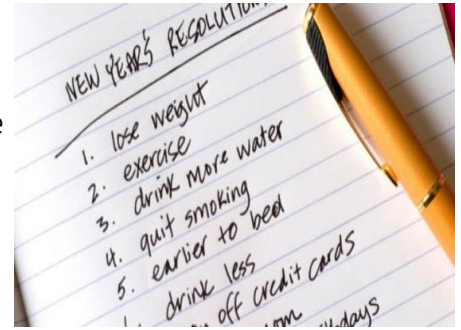 e
NEW YEAR'S RESOLUTION
1. lose weight
2. exercise
3. drink more water
4. quit smoking
5. earlier to bed
drink less
off credit cards